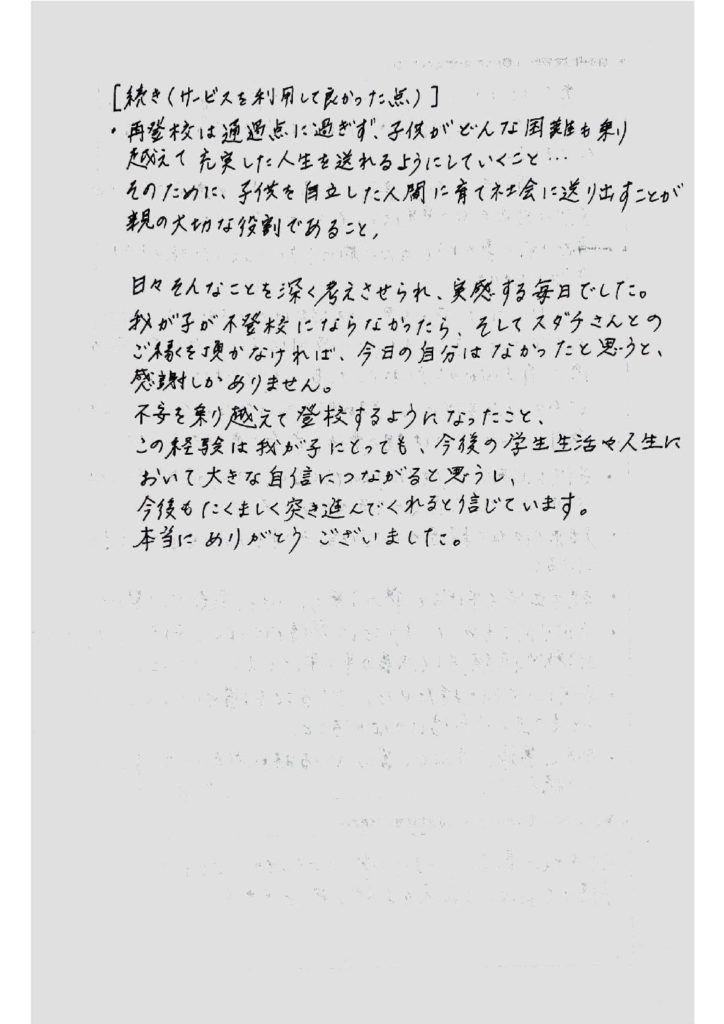 [続き(サービスを利用して良かった点)]
・再登校は通過点に過ぎず、子供がどんな困難も乗り
越えて充実した人生を送れるようにしていくこと…
そのために、子供を自立した人間に育て社会に送り出すことが
親の大切な役割であること、
日々そんなことを深く考えさせられ、実感する毎日でした。
我が子が不登校にならなかったら、そしてスダチさんとの
ご縁を頂かなければ、今日の自分はなかったと思うと、
感謝しかありません。
不安を乗り越えて登校するようになったこと、
この経験は我が子にとっても、今後の学生生活や人生に
おいて大きな自信につながると思うし、
今後もたくましく突き進んでくれると信じています。
本当にありがとうございました。